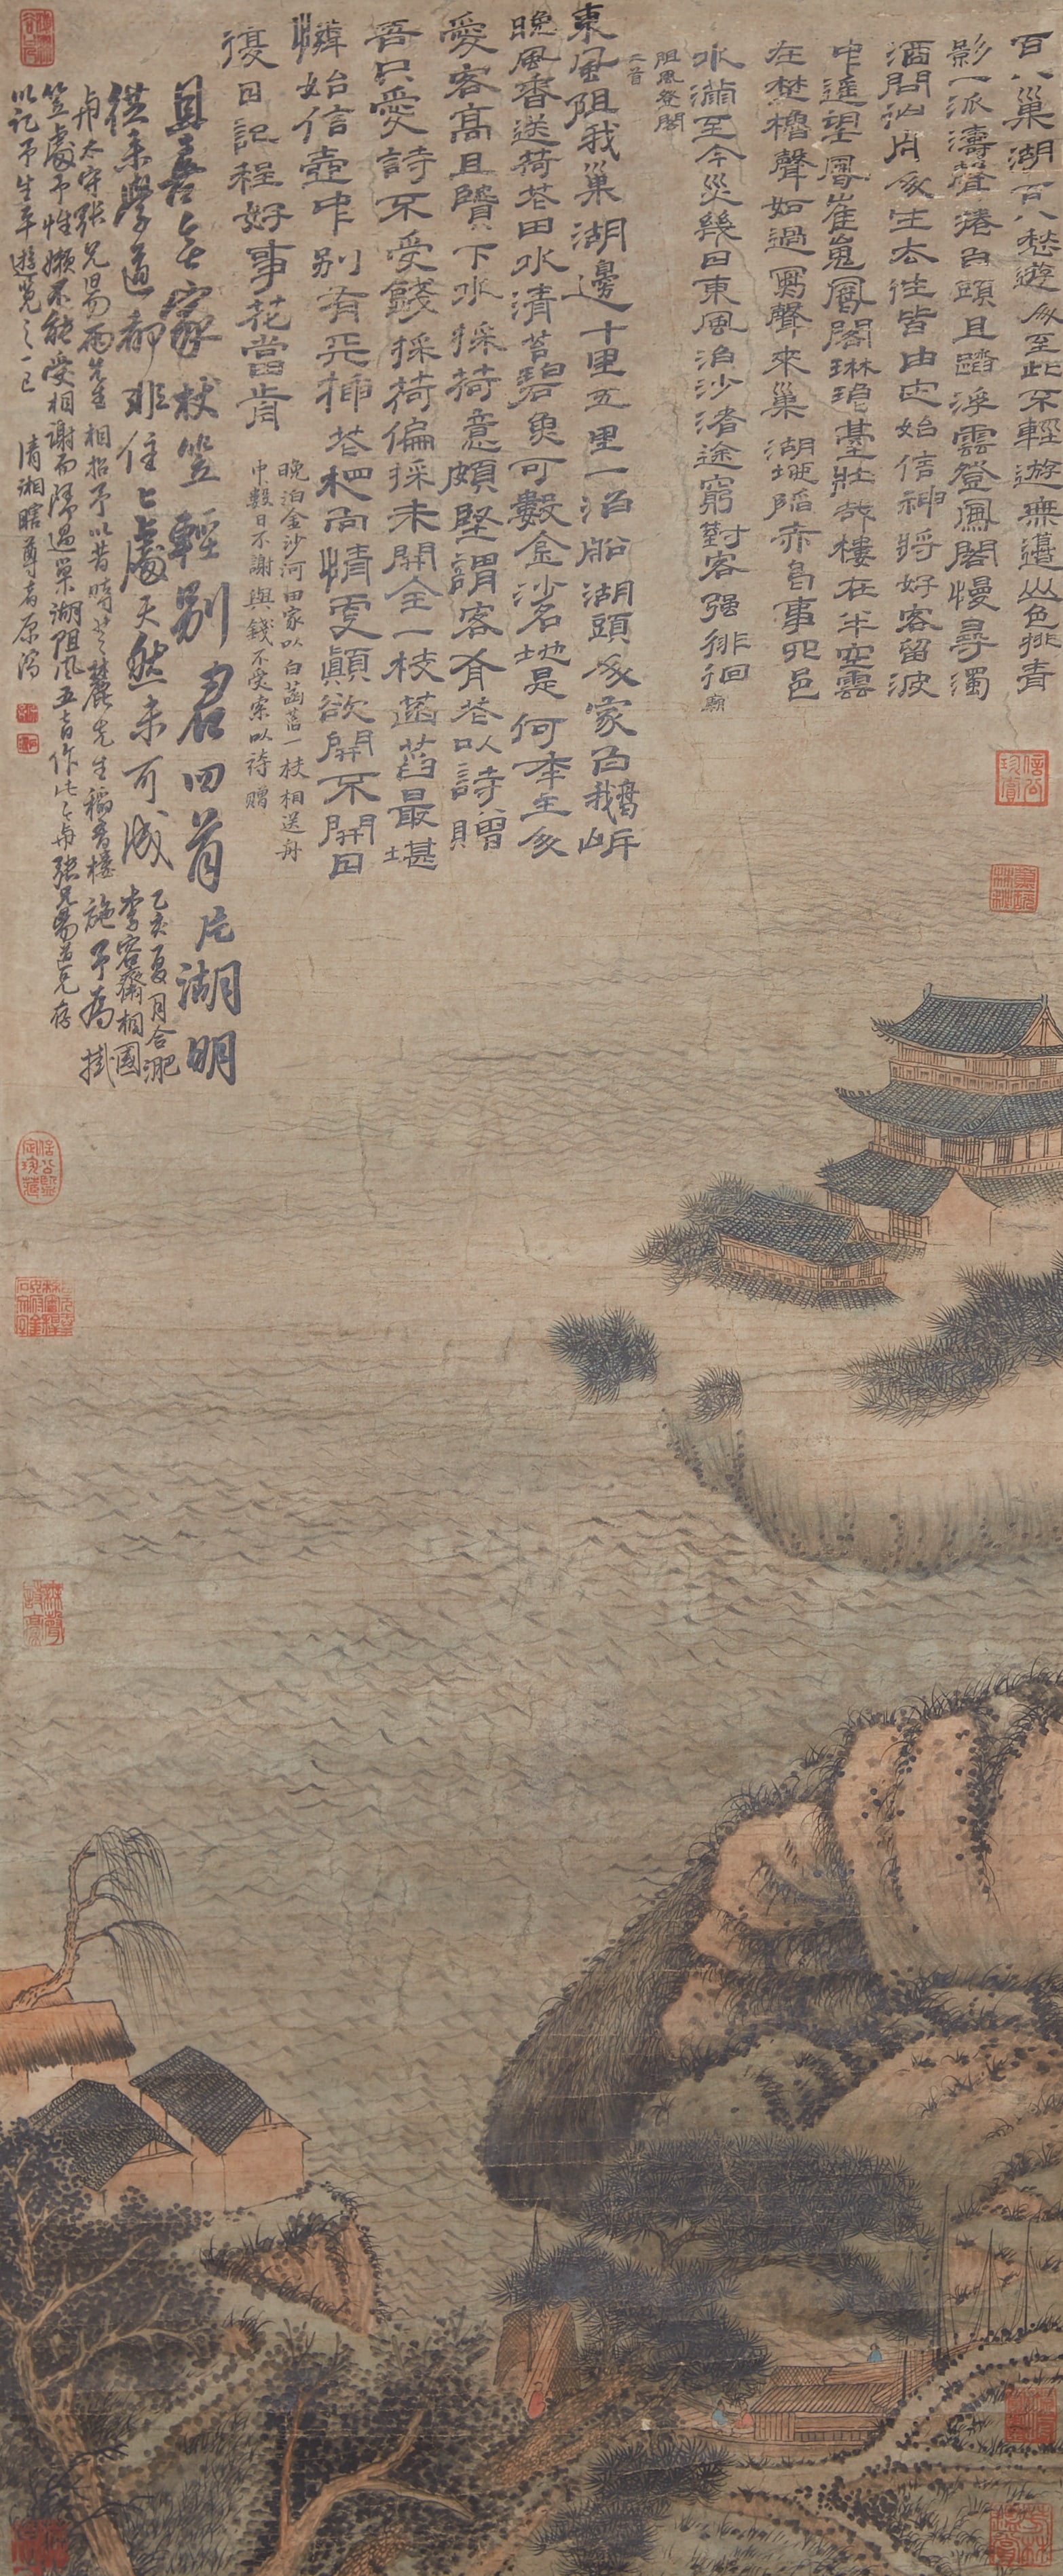 百八巢湖百八愁遊人至此不輕遊無邊山色排青
影一派濤聲捲白頭且踏浮雲登鳳閣慢尋濁
酒問仙舟人生去住皆由定始信神將好客留 波
中遙望鳳崔嵬鳳閣琳琅臺壯哉樓在半空雲
在楚櫓聲如過鴈聲來巢湖地陷赤烏事四邑
水滿至今災幾日東風泊沙渚途窮對客强徘徊 廟
阻風登閣
二首
東風阻我巢湖邊十里五里一泊船湖頭人家白鵝岸
晚風香送荷花田水清苔碧魚可數金沙名地是何年主人
愛客高且贒下水採荷意頗堅謂客有花以詩贈
吾只愛詩不受錢採荷偏採未開全一枝菡萏最堪
憐始信壺中別有天插花相向情更顛欲開不開日
復日記程好事花當肯
晚泊金沙河田家以白菡萏一枝相送舟
中數日不謝與錢不受索以詩贈
且喜無家杖笠輕別君回首片湖明
從來學道都非住住處天然未可成
乙亥夏月合淝
李容齋相國
與太守張見昜兩先生相招予以昔時芝麓先生稻香樓施予為掛
笠處予性懶不能受相謝而歸過巢湖阻風五首作此與張見昜道兄存
以記予生平遊覽之一已 清湘瞎尊者原濟
信公珍賞